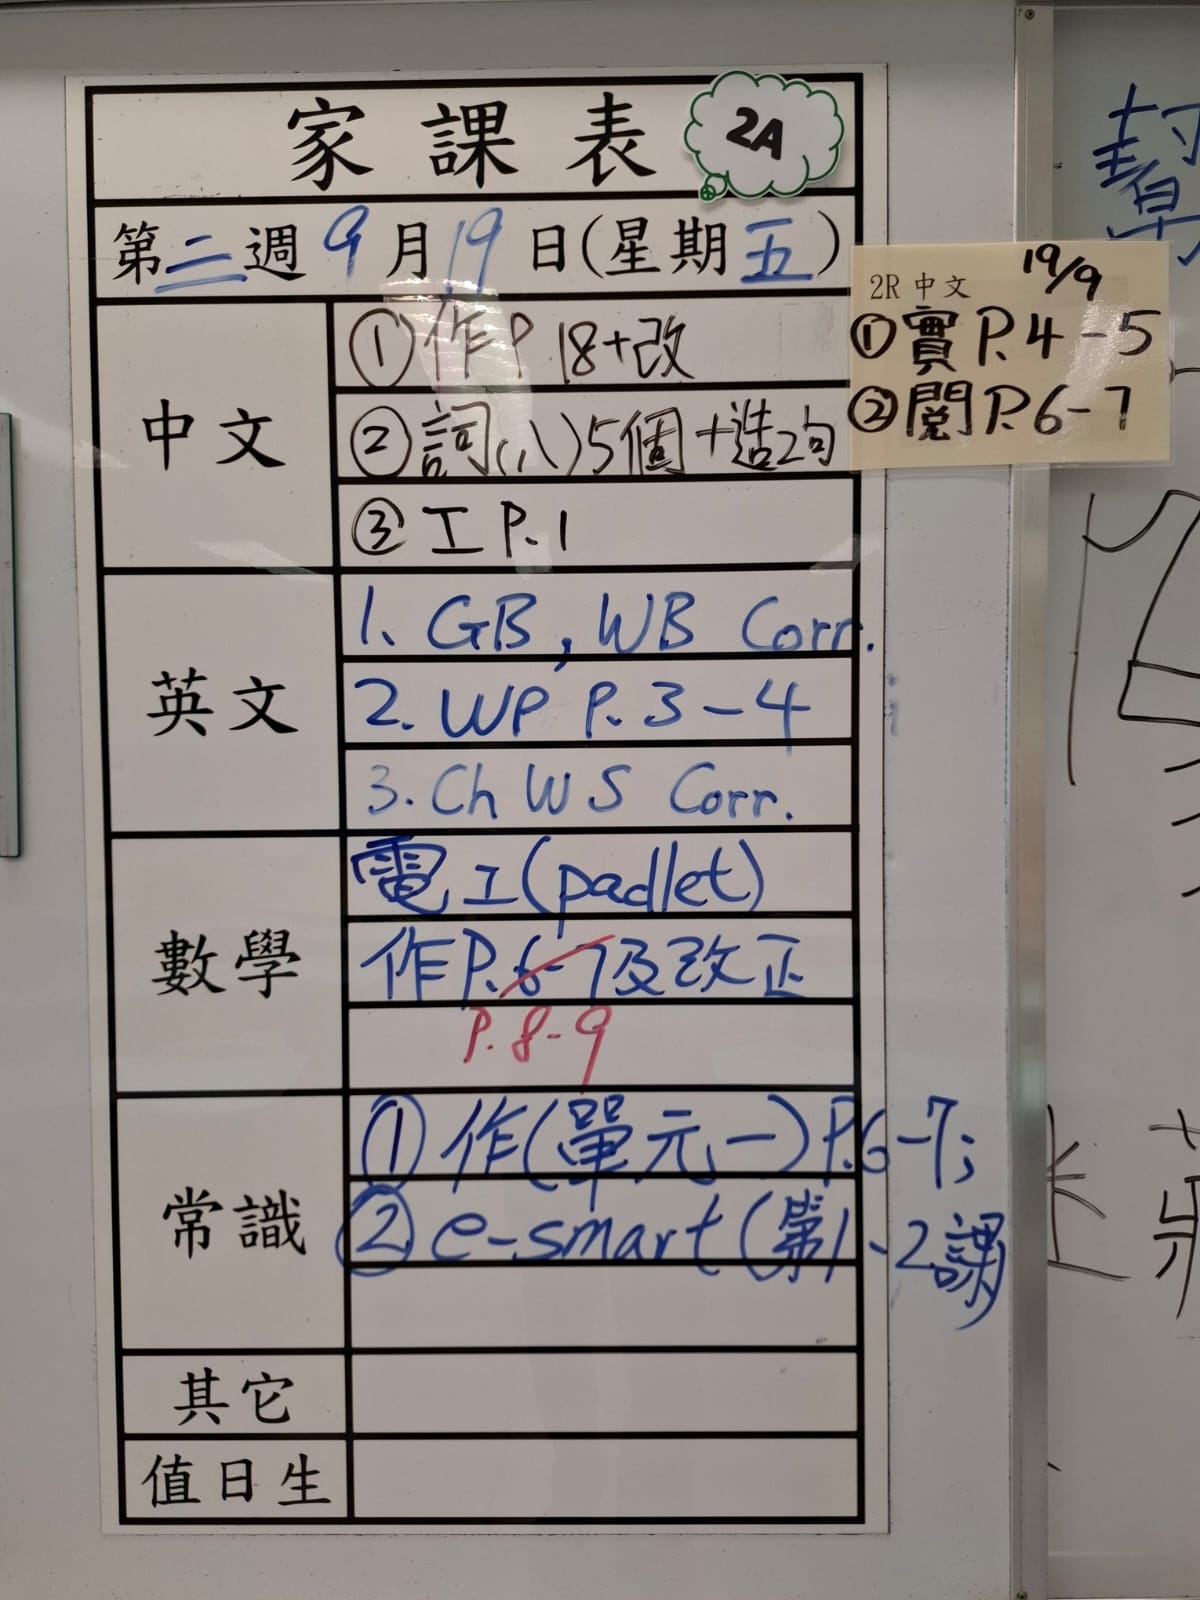 家課表 2A
第二週 9月19日(星期五)
中文
①作P.18+改
②詞(八)5個+造2句
③工P.1
2R中文 19/9
①實P.4-5
②閱P.6-7
英文
1. GB, WB Corr.
2. WP P.3-4
3. Ch WS Corr.
數學
電工(padlet)
作P.6-7及改正
P.8-9
常識
①作(單元一)P.6-7;
②e-smart(第1-2課
其它
值日生